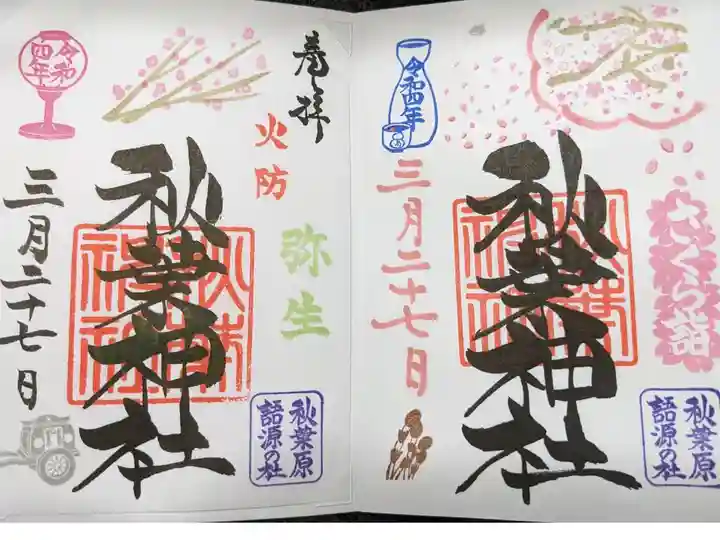 奉拝
火防
弥生
秋葉神社
秋葉神社
令和
四年
三月二十七日
秋葉原
語源の社
さくら詣
秋葉神社
秋葉神社
令和四年
三月二十七日
秋葉原
語源の社